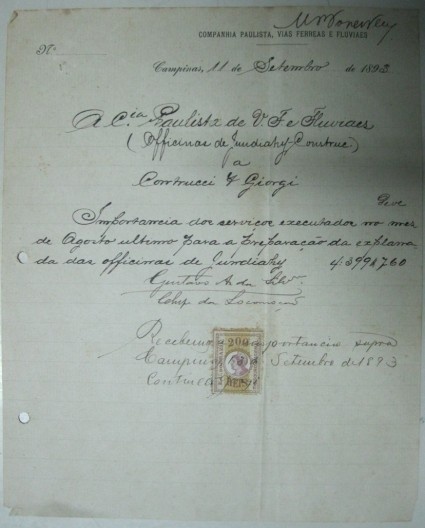 COMPANHIA PAULISTA, VIAS FERREAS E FLUVIAES
Nº
Campinas, 11 de Setembro de 1893
A C.ia Paulista de V. F. e Fluviaes
(Officinas de Jundiahy-Construc.)
a
Contrucci & Giorgi
Deve
Importancia dos serviços executados no mez
de Agosto ultimo para a preparação da explana
da das officinas de Jundiahy 4:399$760
Gustavo A. da Silva
Chefe da Locomoção
Recebemos a importancia supra
Campinas Setembro de 1893
200